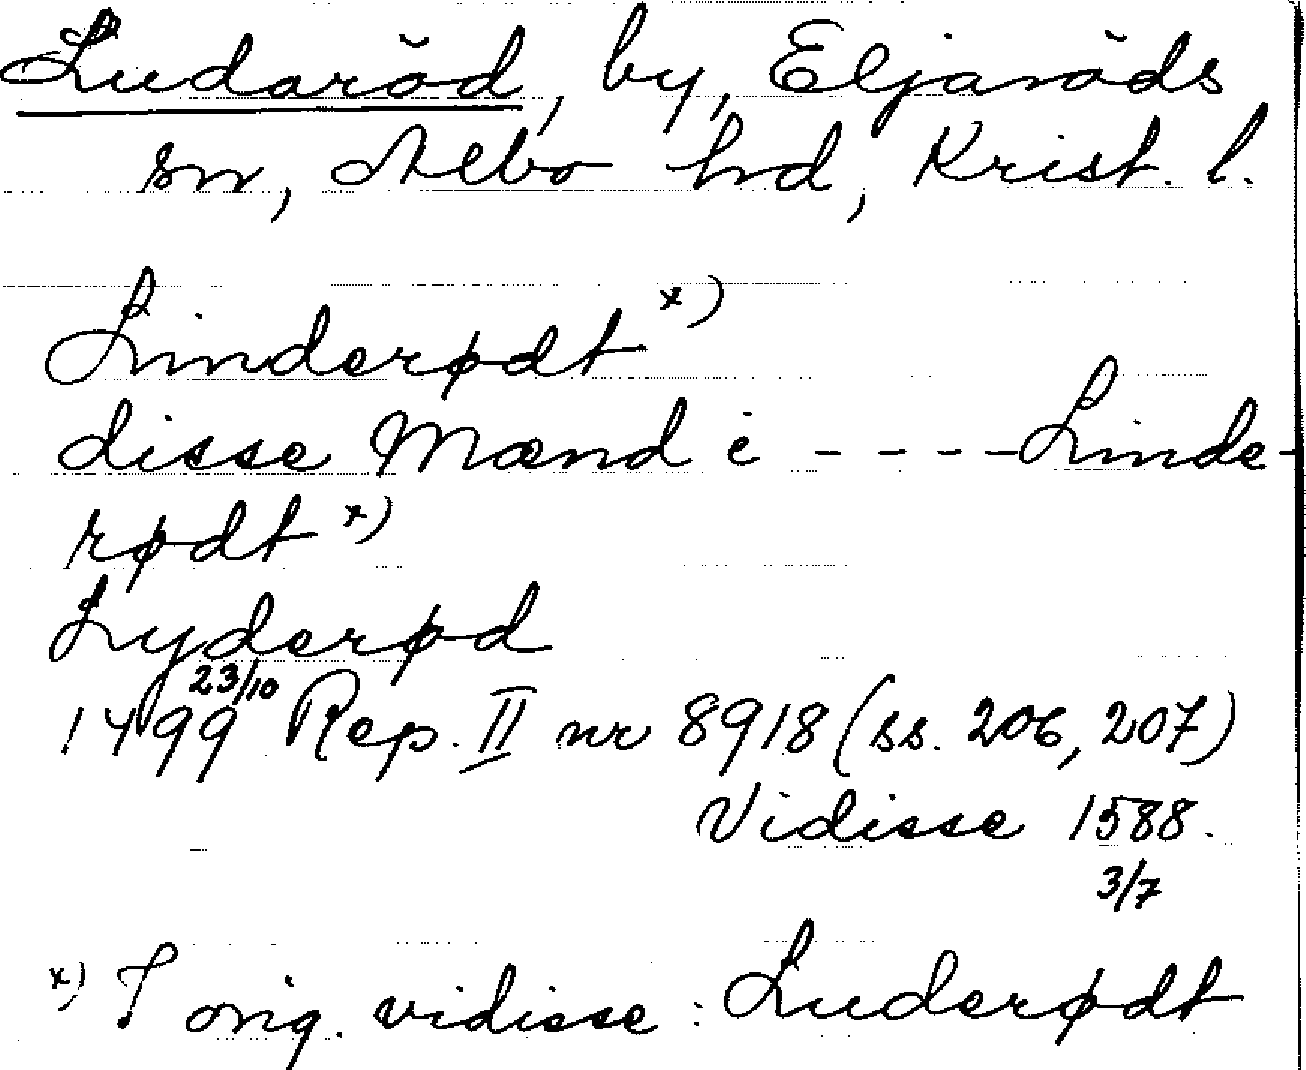 Ludaröd, by, Eljaröds
sn, Albo hd, Krist. l.
Linderødt x)
disse Mænd i - - - - Linde-
rødt x)
Lyderød
1499 23/10 Rep. II nr 8918 (ss. 206, 207)
Vidisse 1588.
3/7
x) I orig. vidisse: Luderødt